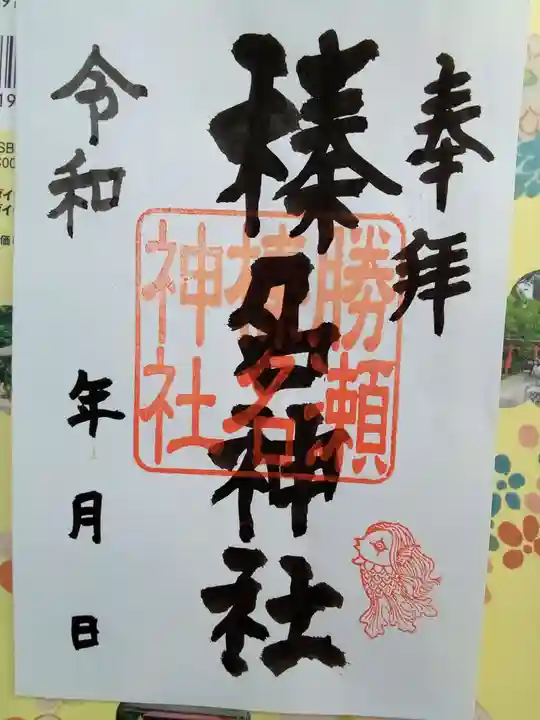 奉拝
榛名神社
勝瀬
榛名
神社
令和
年
月
日